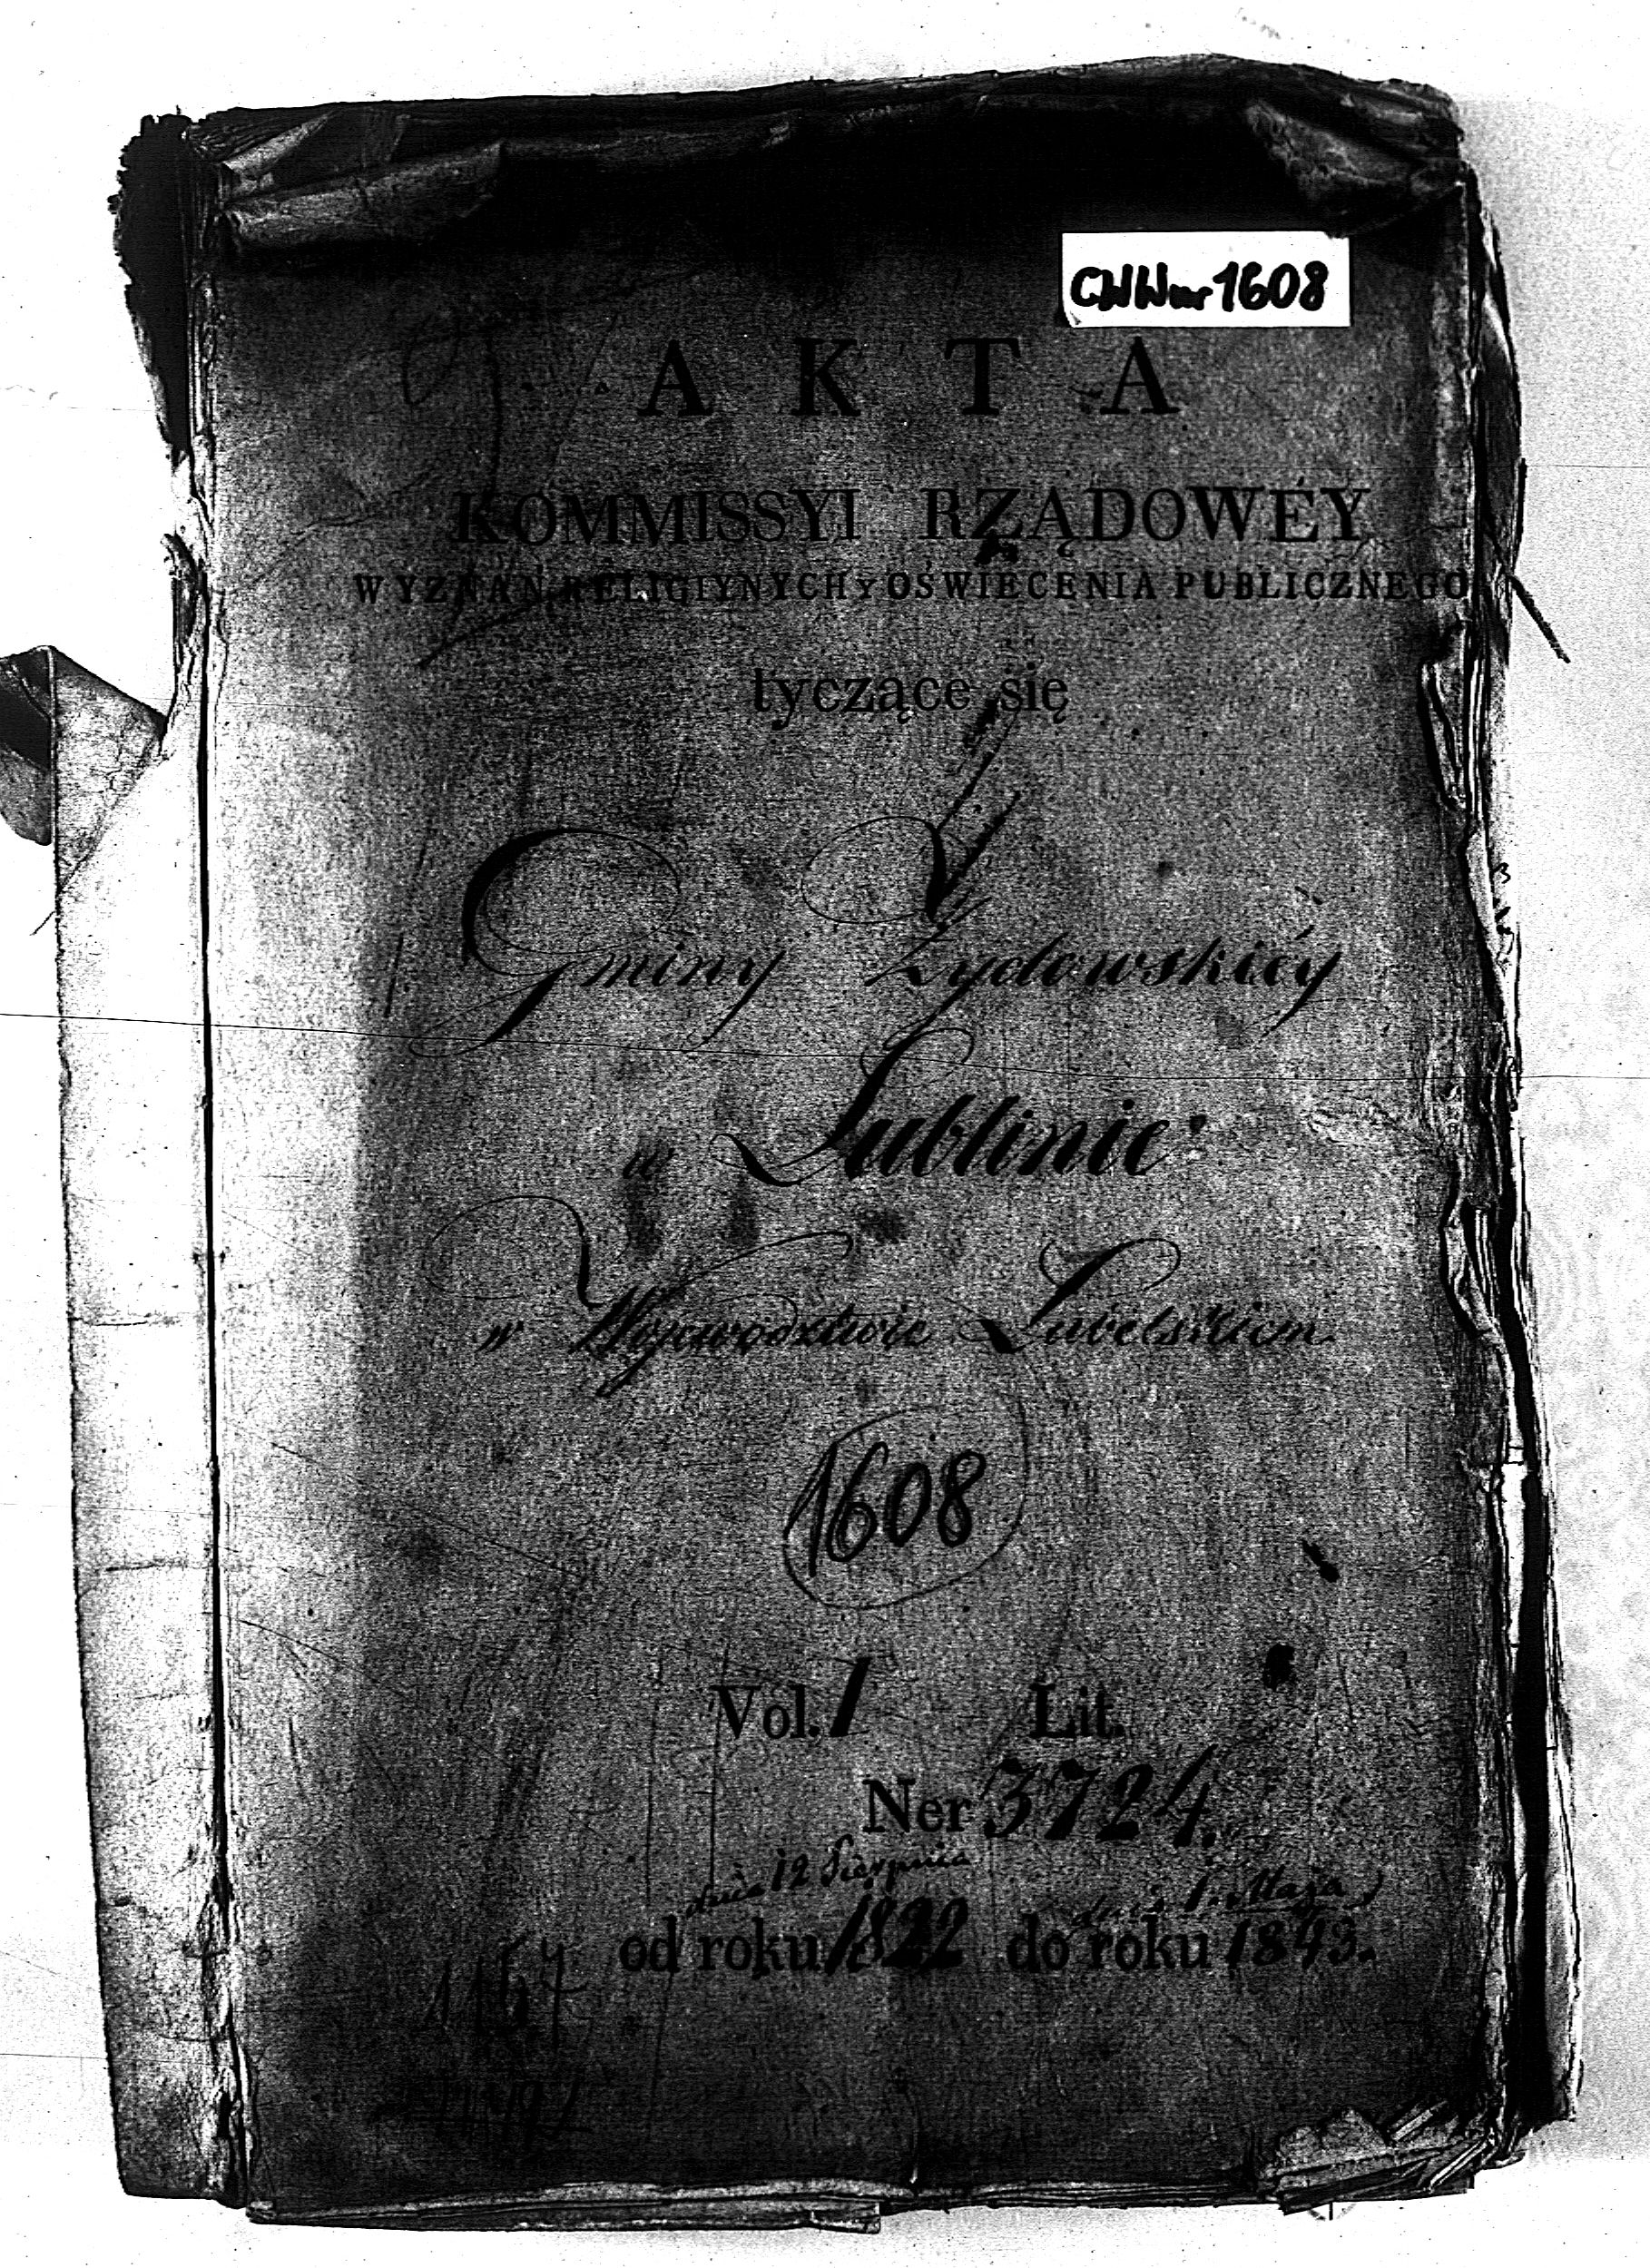 CWW nr 1608
AKTA
KOMMISSYI RZĄDOWÉY
WYZNAŃ RELIGIYNYCH Y OŚWIECENIA PUBLICZNEGO
tyczące się
Gminy Żydowskiéy
w Lublinie
w Wojewodztwie Lubelskiem.
1608
Vol. 1 Lit.
Ner 3724.
dnia 12 Sierpnia dnia 1. Maja
od roku 1822 do roku 1843.